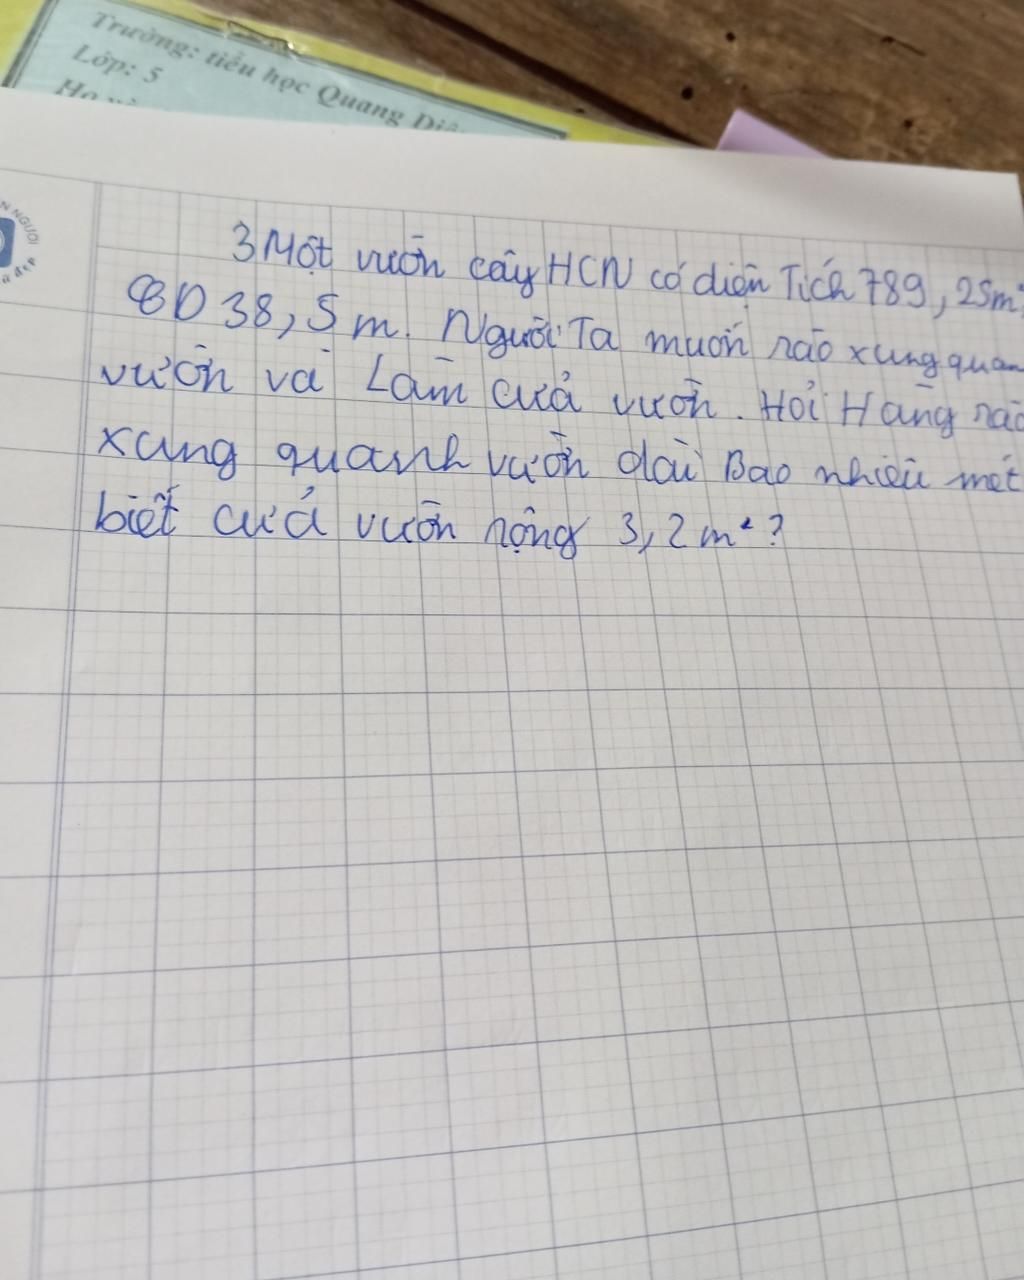 Trường: tiểu học Quang Diệ
Lớp: 5
N NGƯỜI
3 Một vườn cây HCN có diện Tích 789,25m²,
CD 38,5m. Người Ta muốn rào xung quan
vườn và Làm cửa vườn. Hỏi Hàng rào
xung quanh vườn dài Bao nhiêu mét
biết cửa vườn rộng 3,2m²?